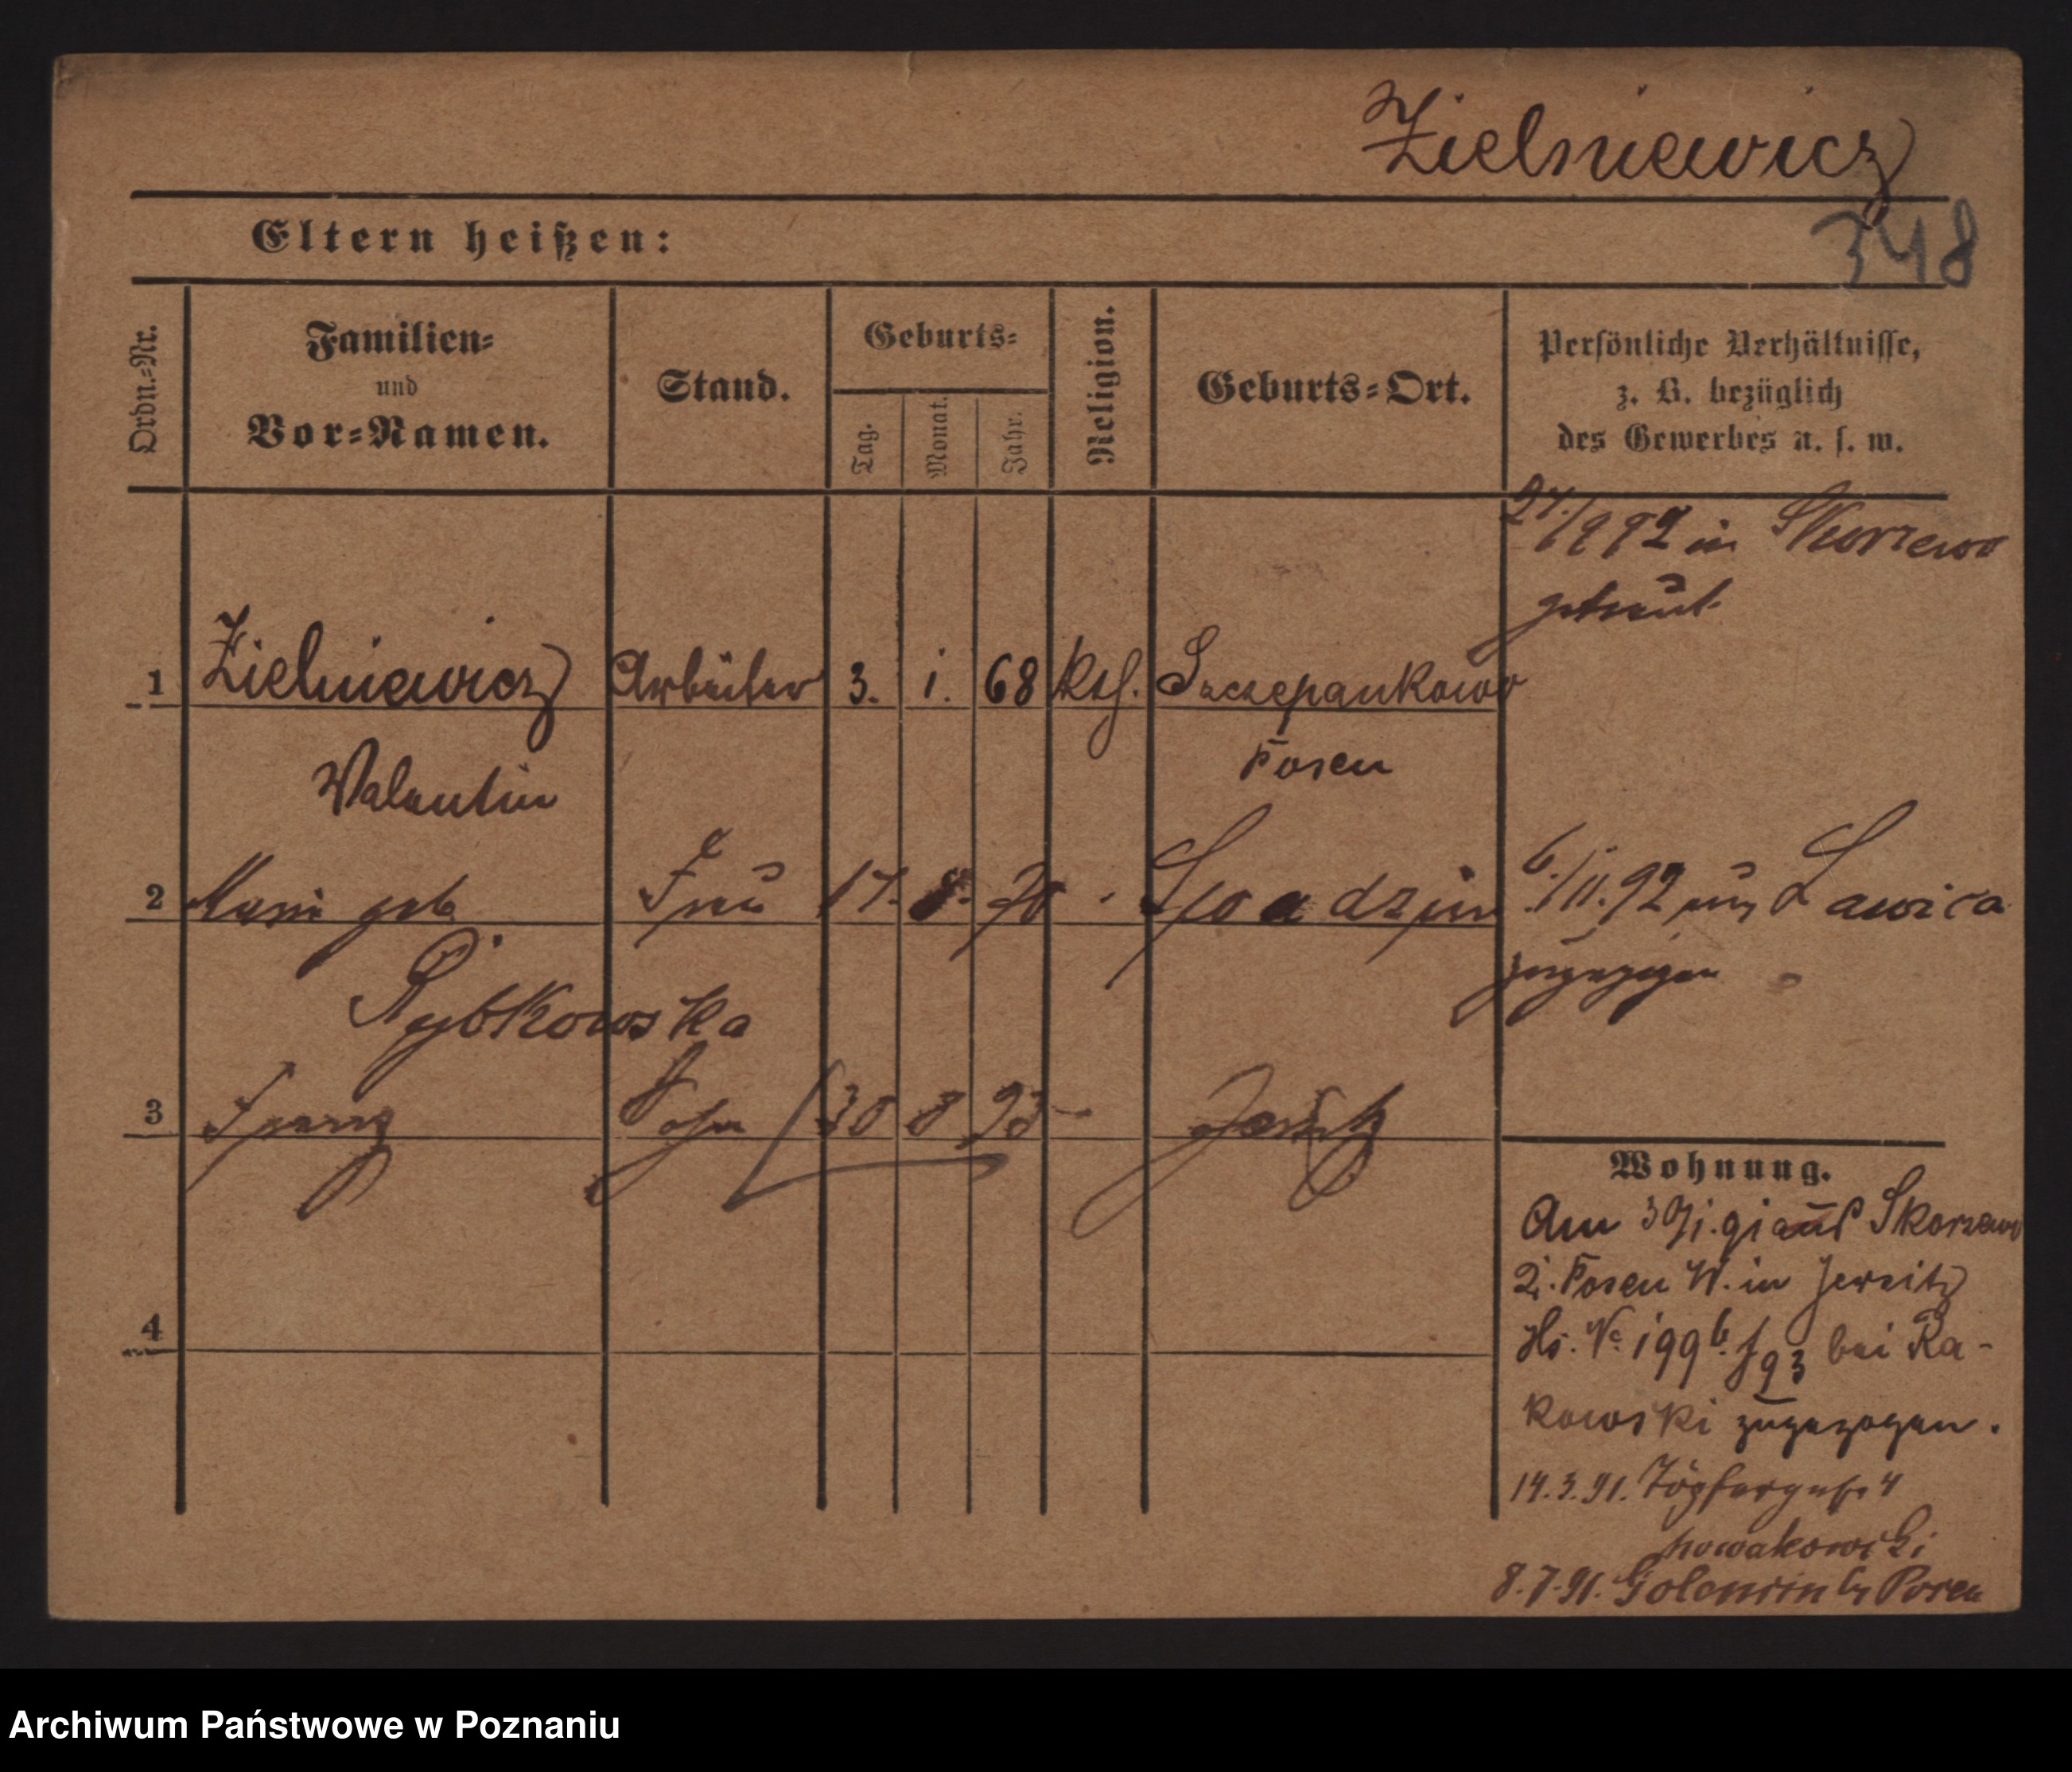 Zielniewicz
348
Eltern heißen:
Ordn.-Nr.
Familien-
und
Vor-Namen.
Stand.
Geburts-
Tag.
Monat.
Jahr.
Religion.
Geburts-Ort.
Persönliche Verhältnisse,
z. B. bezüglich
des Gewerbes u. s. w.
in Skorzewo
getraut
1 Zielniewicz Arbeiter 3. 1. 68 kth. Szczepankowo
Valentin
Posen
2 Marie geb Frau 17. 8. 70 6./11.92 Lawica
Rybkowska
zugezogen
3 Franz Sohn 30 8 93 Jersitz
4
Wohnung.
Am aus Skorzewo
Posen W. in Jersitz
Hs. No 199b. bei Ra-
kowski zugezogen.
14.3.91. Töpfergasse 4
Nowakowski
8.7.91. Golencin b/ Posen
Archiwum Państwowe w Poznaniu